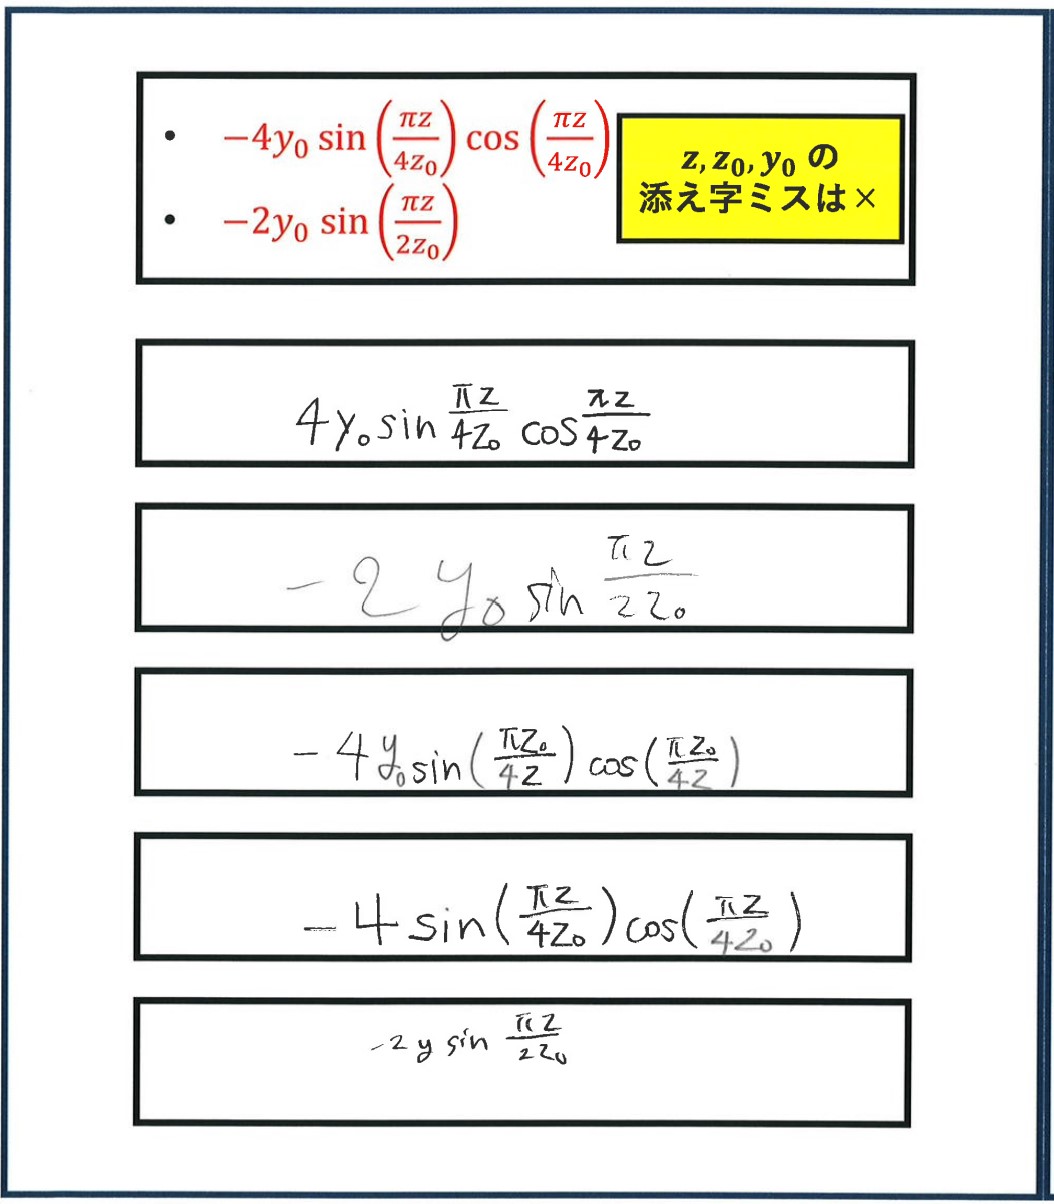 • −4y₀ sin(πz/4z₀) cos(πz/4z₀)
z, z₀, y₀ の
添え字ミスは×
• −2y₀ sin(πz/2z₀)
4y₀ sin πz/4z₀ cos πz/4z₀
−2 y₀ sin πz/2z₀
−4y₀ sin(πz₀/4z) cos(πz₀/4z)
−4 sin(πz/4z₀) cos(πz/4z₀)
−2 y sin πz/2z₀